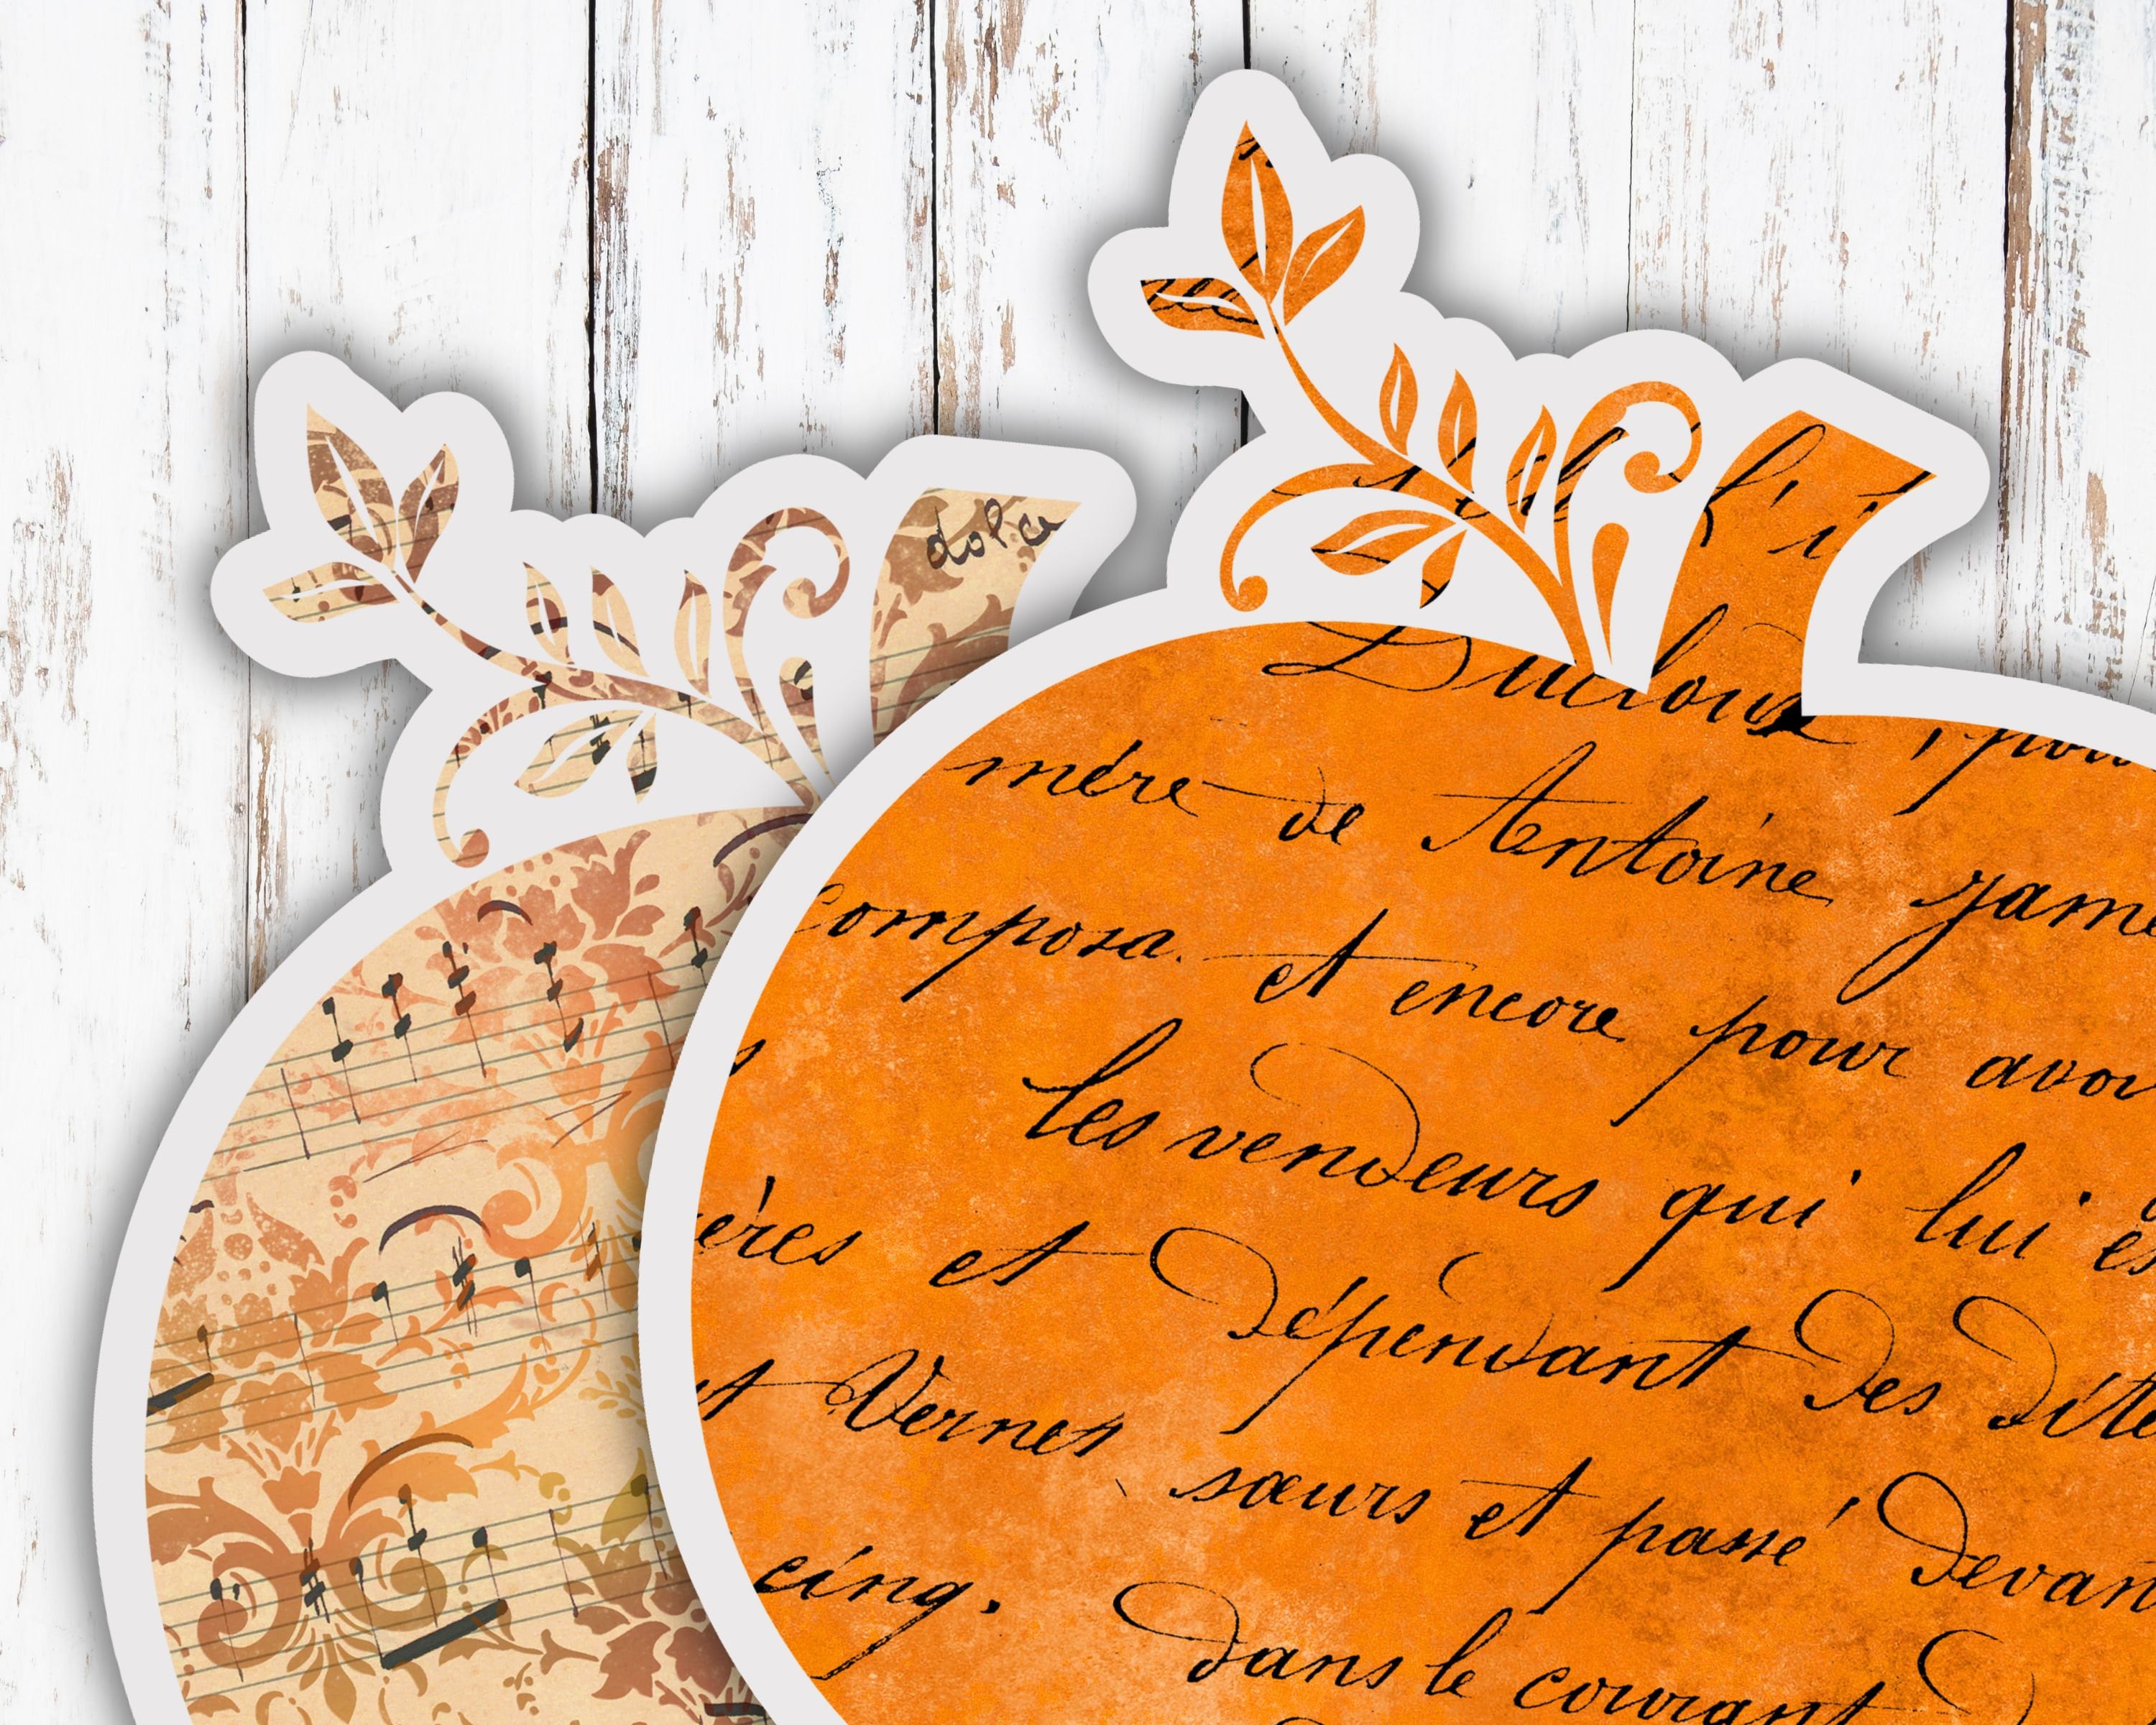 dolce
l'i
Ducloux, pour
mère de Antoine Jame
composa. et encore pour avoi
les vendeurs qui lui es
ères et dépendant des dite
et Vernet, sœurs et passé devan
cinq. dans le courant